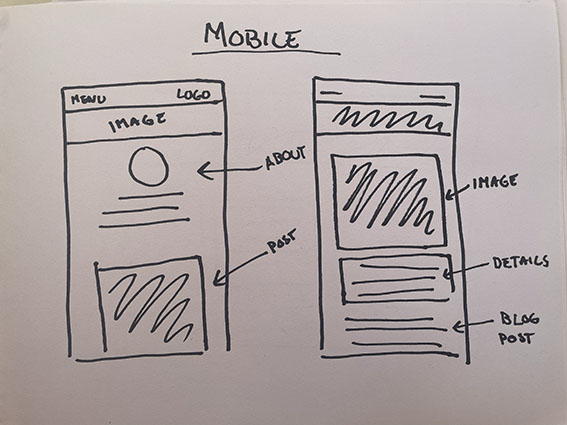 MOBILE
MENU LOGO
IMAGE
ABOUT
POST
IMAGE
DETAILS
BLOG
POST